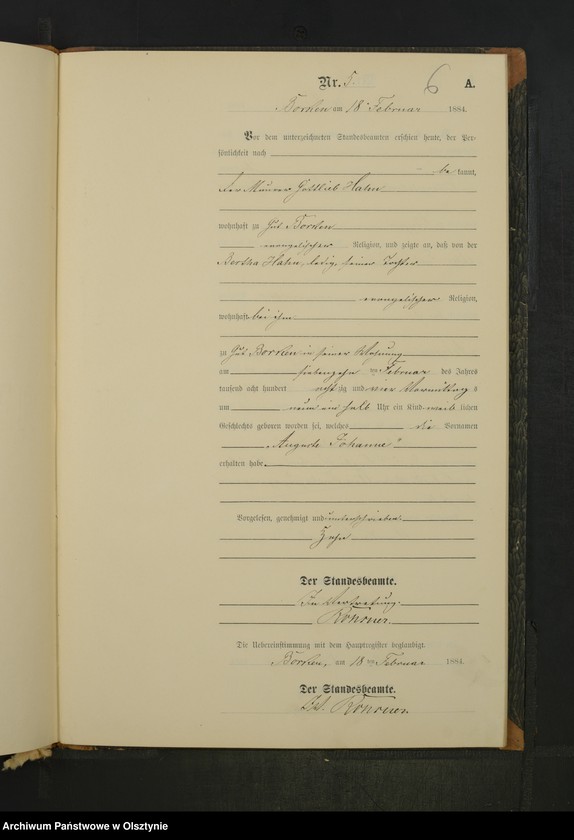 Nr. 5. 6 A.
Borken am 18ten Februar 1884.
Vor dem unterzeichneten Standesbeamten erschien heute, der Per-
sönlichkeit nach
be kannt,
der Maurer Gottlieb Hahn
wohnhaft zu Gut Borken
evangelischer Religion, und zeigte an, daß von der
Bertha Hahn, ledig, seiner Tochter
evangelischer Religion,
wohnhaft bei ihm
zu Gut Borken in seiner Wohnung
am siebenzehn ten Februar des Jahres
tausend acht hundert acht zig und vier Vormittag s
um neun ein halb Uhr ein Kind weib lichen
Geschlechts geboren worden sei, welches die Vornamen
„Auguste Johanne“
erhalten habe.
Vorgelesen, genehmigt und unterschrieben.
Der Standesbeamte.
In Vertretung.
Die Uebereinstimmung mit dem Hauptregister beglaubigt.
Borken, am 18 ten Februar 1884.
Der Standesbeamte.
Archiwum Państwowe w Olsztynie